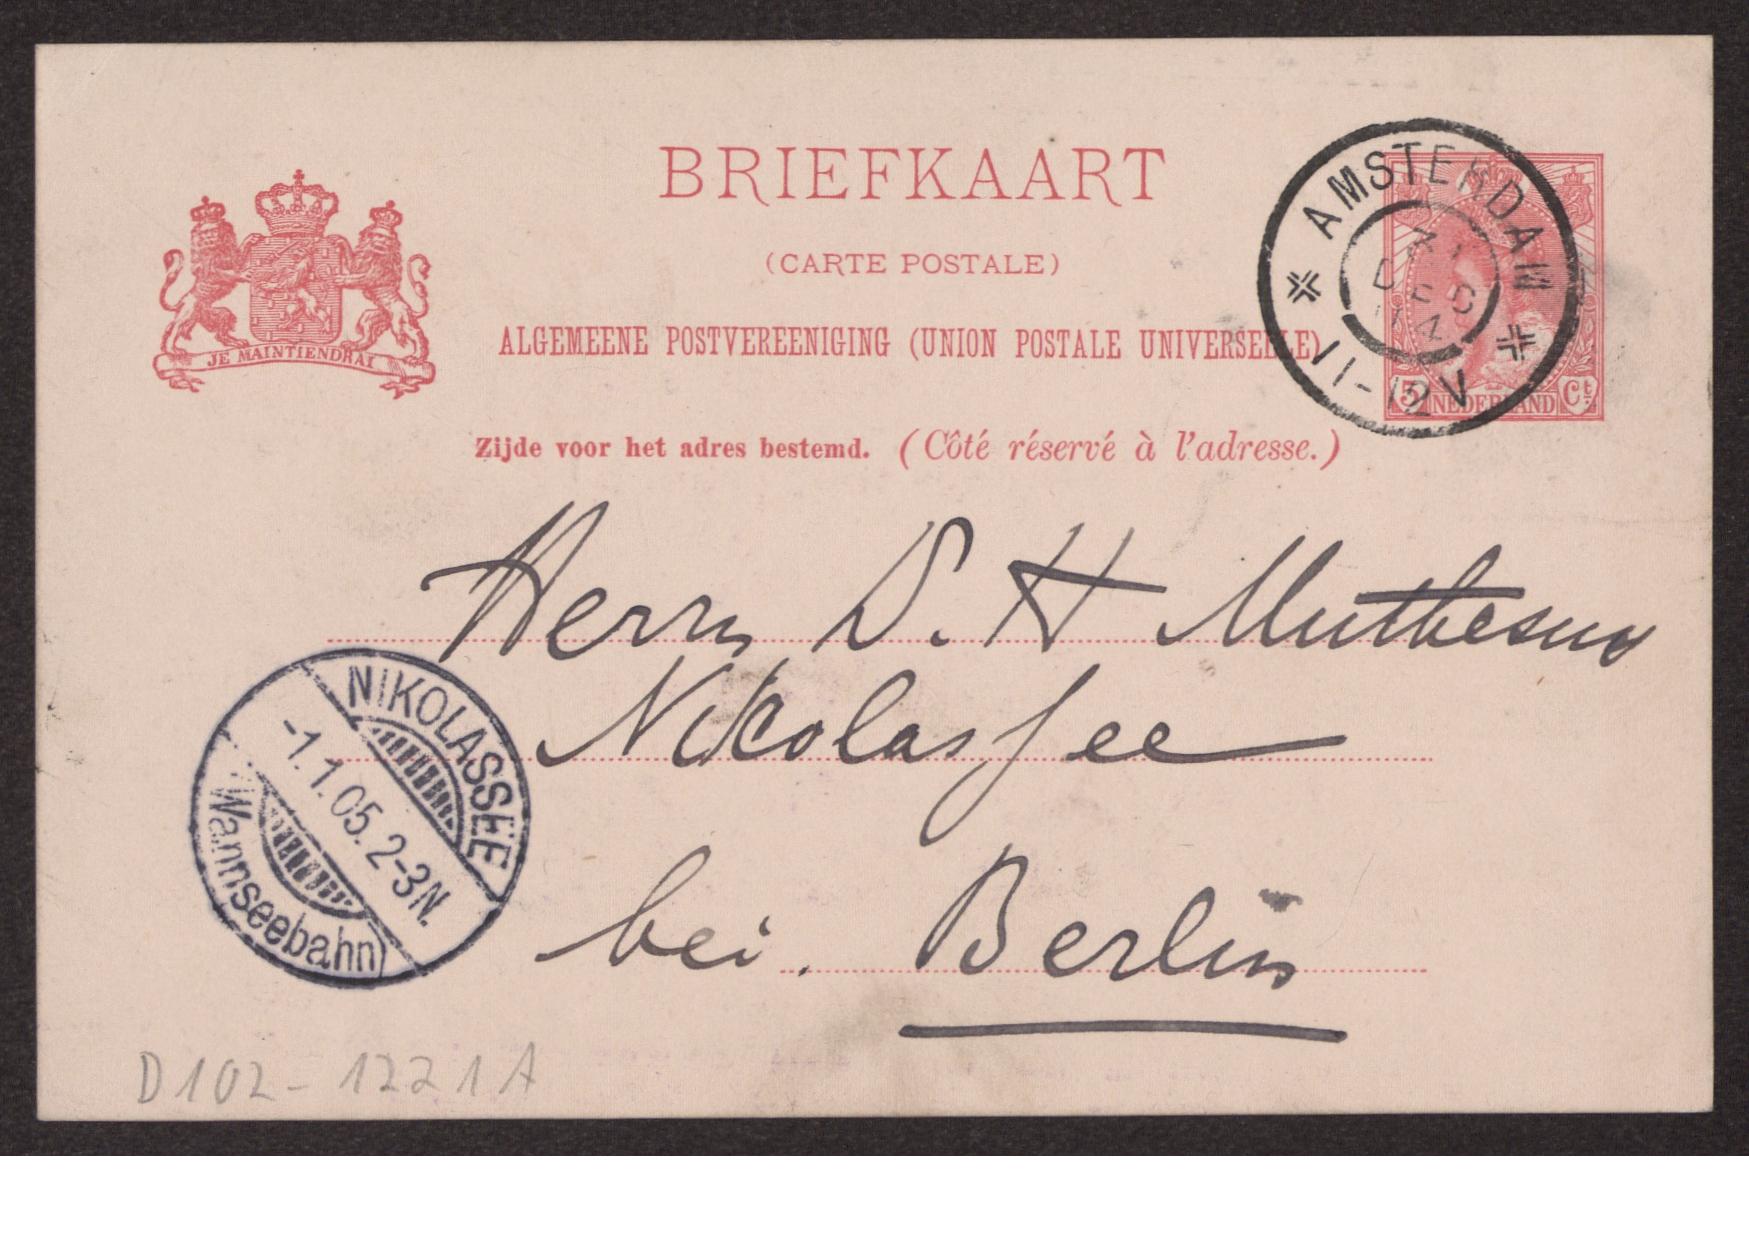 BRIEFKAART
(CARTE POSTALE)
ALGEMEENE POSTVEREENIGING (UNION POSTALE UNIVERSELLE)
Zijde voor het adres bestemd. (Côté réservé à l'adresse.)
JE MAINTIENDRAI
AMSTERDAM
31
DEC
04
11-12V
5 NEDERLAND Ct.
Herrn D. H Muthesius
Nikolassee
bei Berlin
NIKOLASSEE
-1.1.05.2-3N.
(Wannseebahn)
D102-1221A